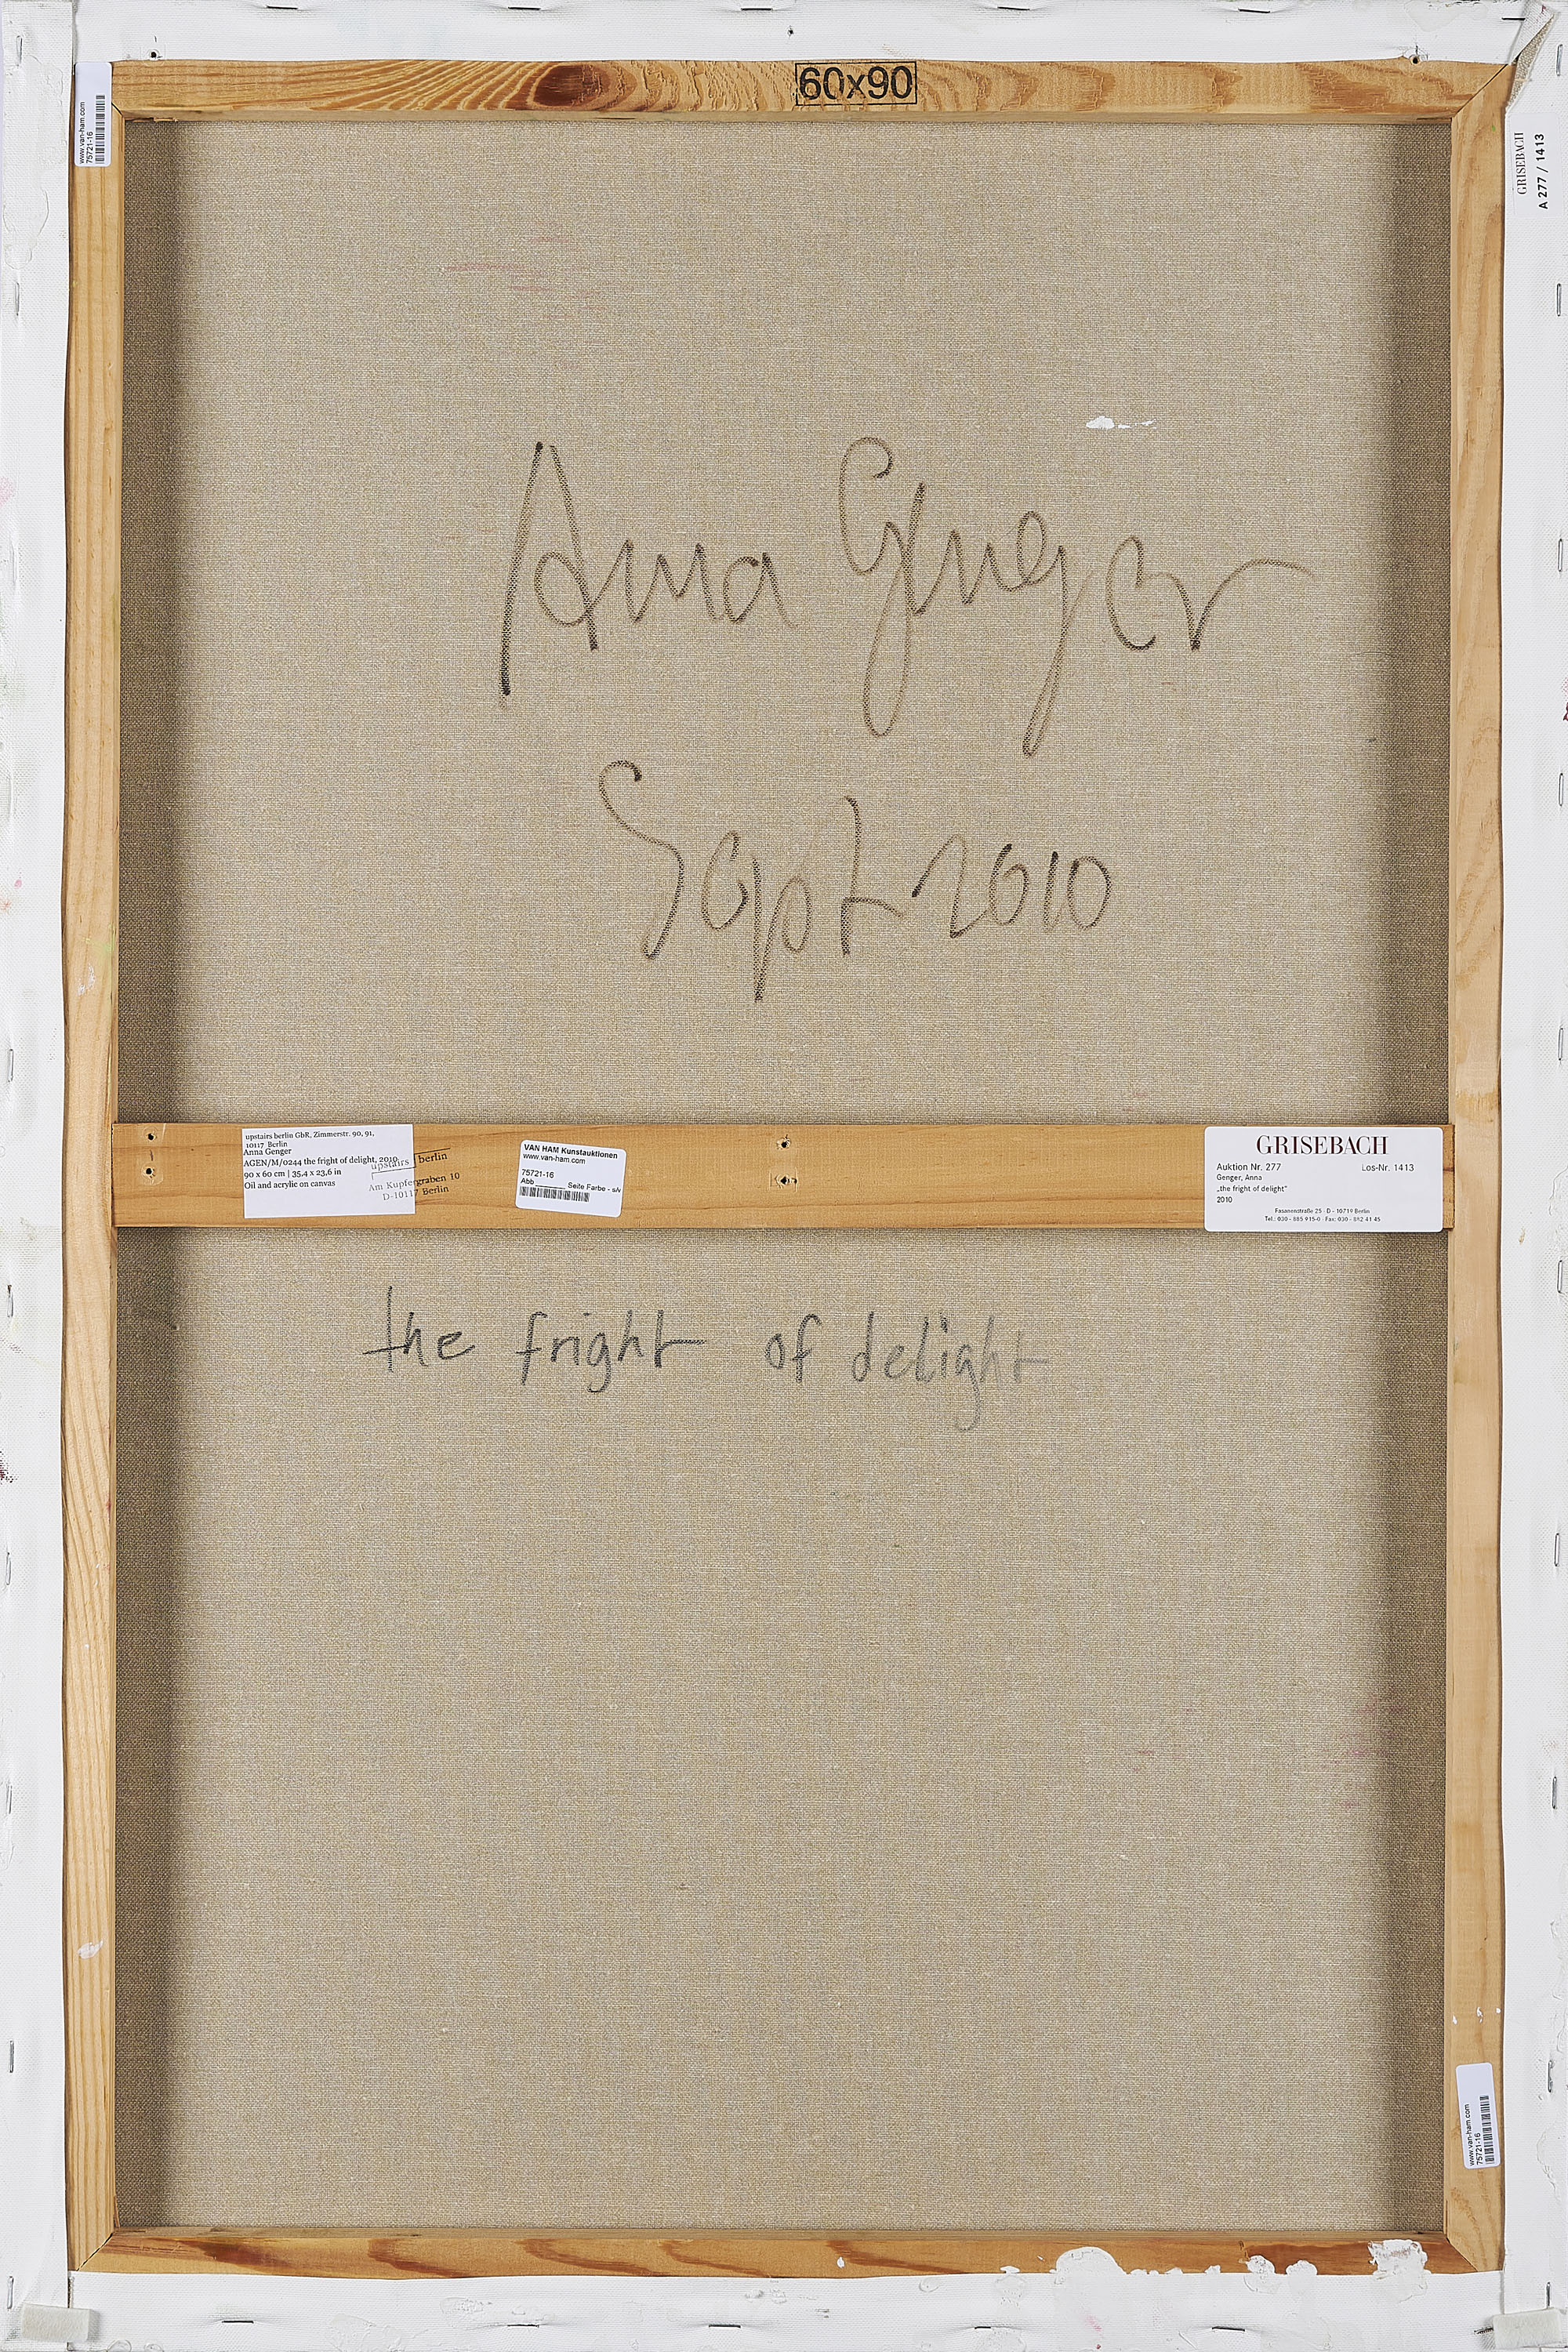 60x90
www.van-ham.com
75721-16
GRISEBACH
A 277 / 1413
Anna Genger
Sept 2010
upstairs berlin GbR, Zimmerstr. 90, 91,
10117 Berlin
Anna Genger
AGEN/M/0244 the fright of delight, 2010
90 x 60 cm | 35,4 x 23,6 in
Oil and acrylic on canvas
upstairs berlin
Am Kupfergraben 10
D-10117 Berlin
VAN HAM Kunstauktionen
www.van-ham.com
75721-16
Abb Seite Farbe - s/w
GRISEBACH
Auktion Nr. 277 Los-Nr. 1413
Genger, Anna
„the fright of delight"
2010
Fasanenstraße 25 · D - 10719 Berlin
Tel.: 030 - 885 915-0 · Fax: 030 - 882 41 45
the fright of delight
www.van-ham.com
75721-16